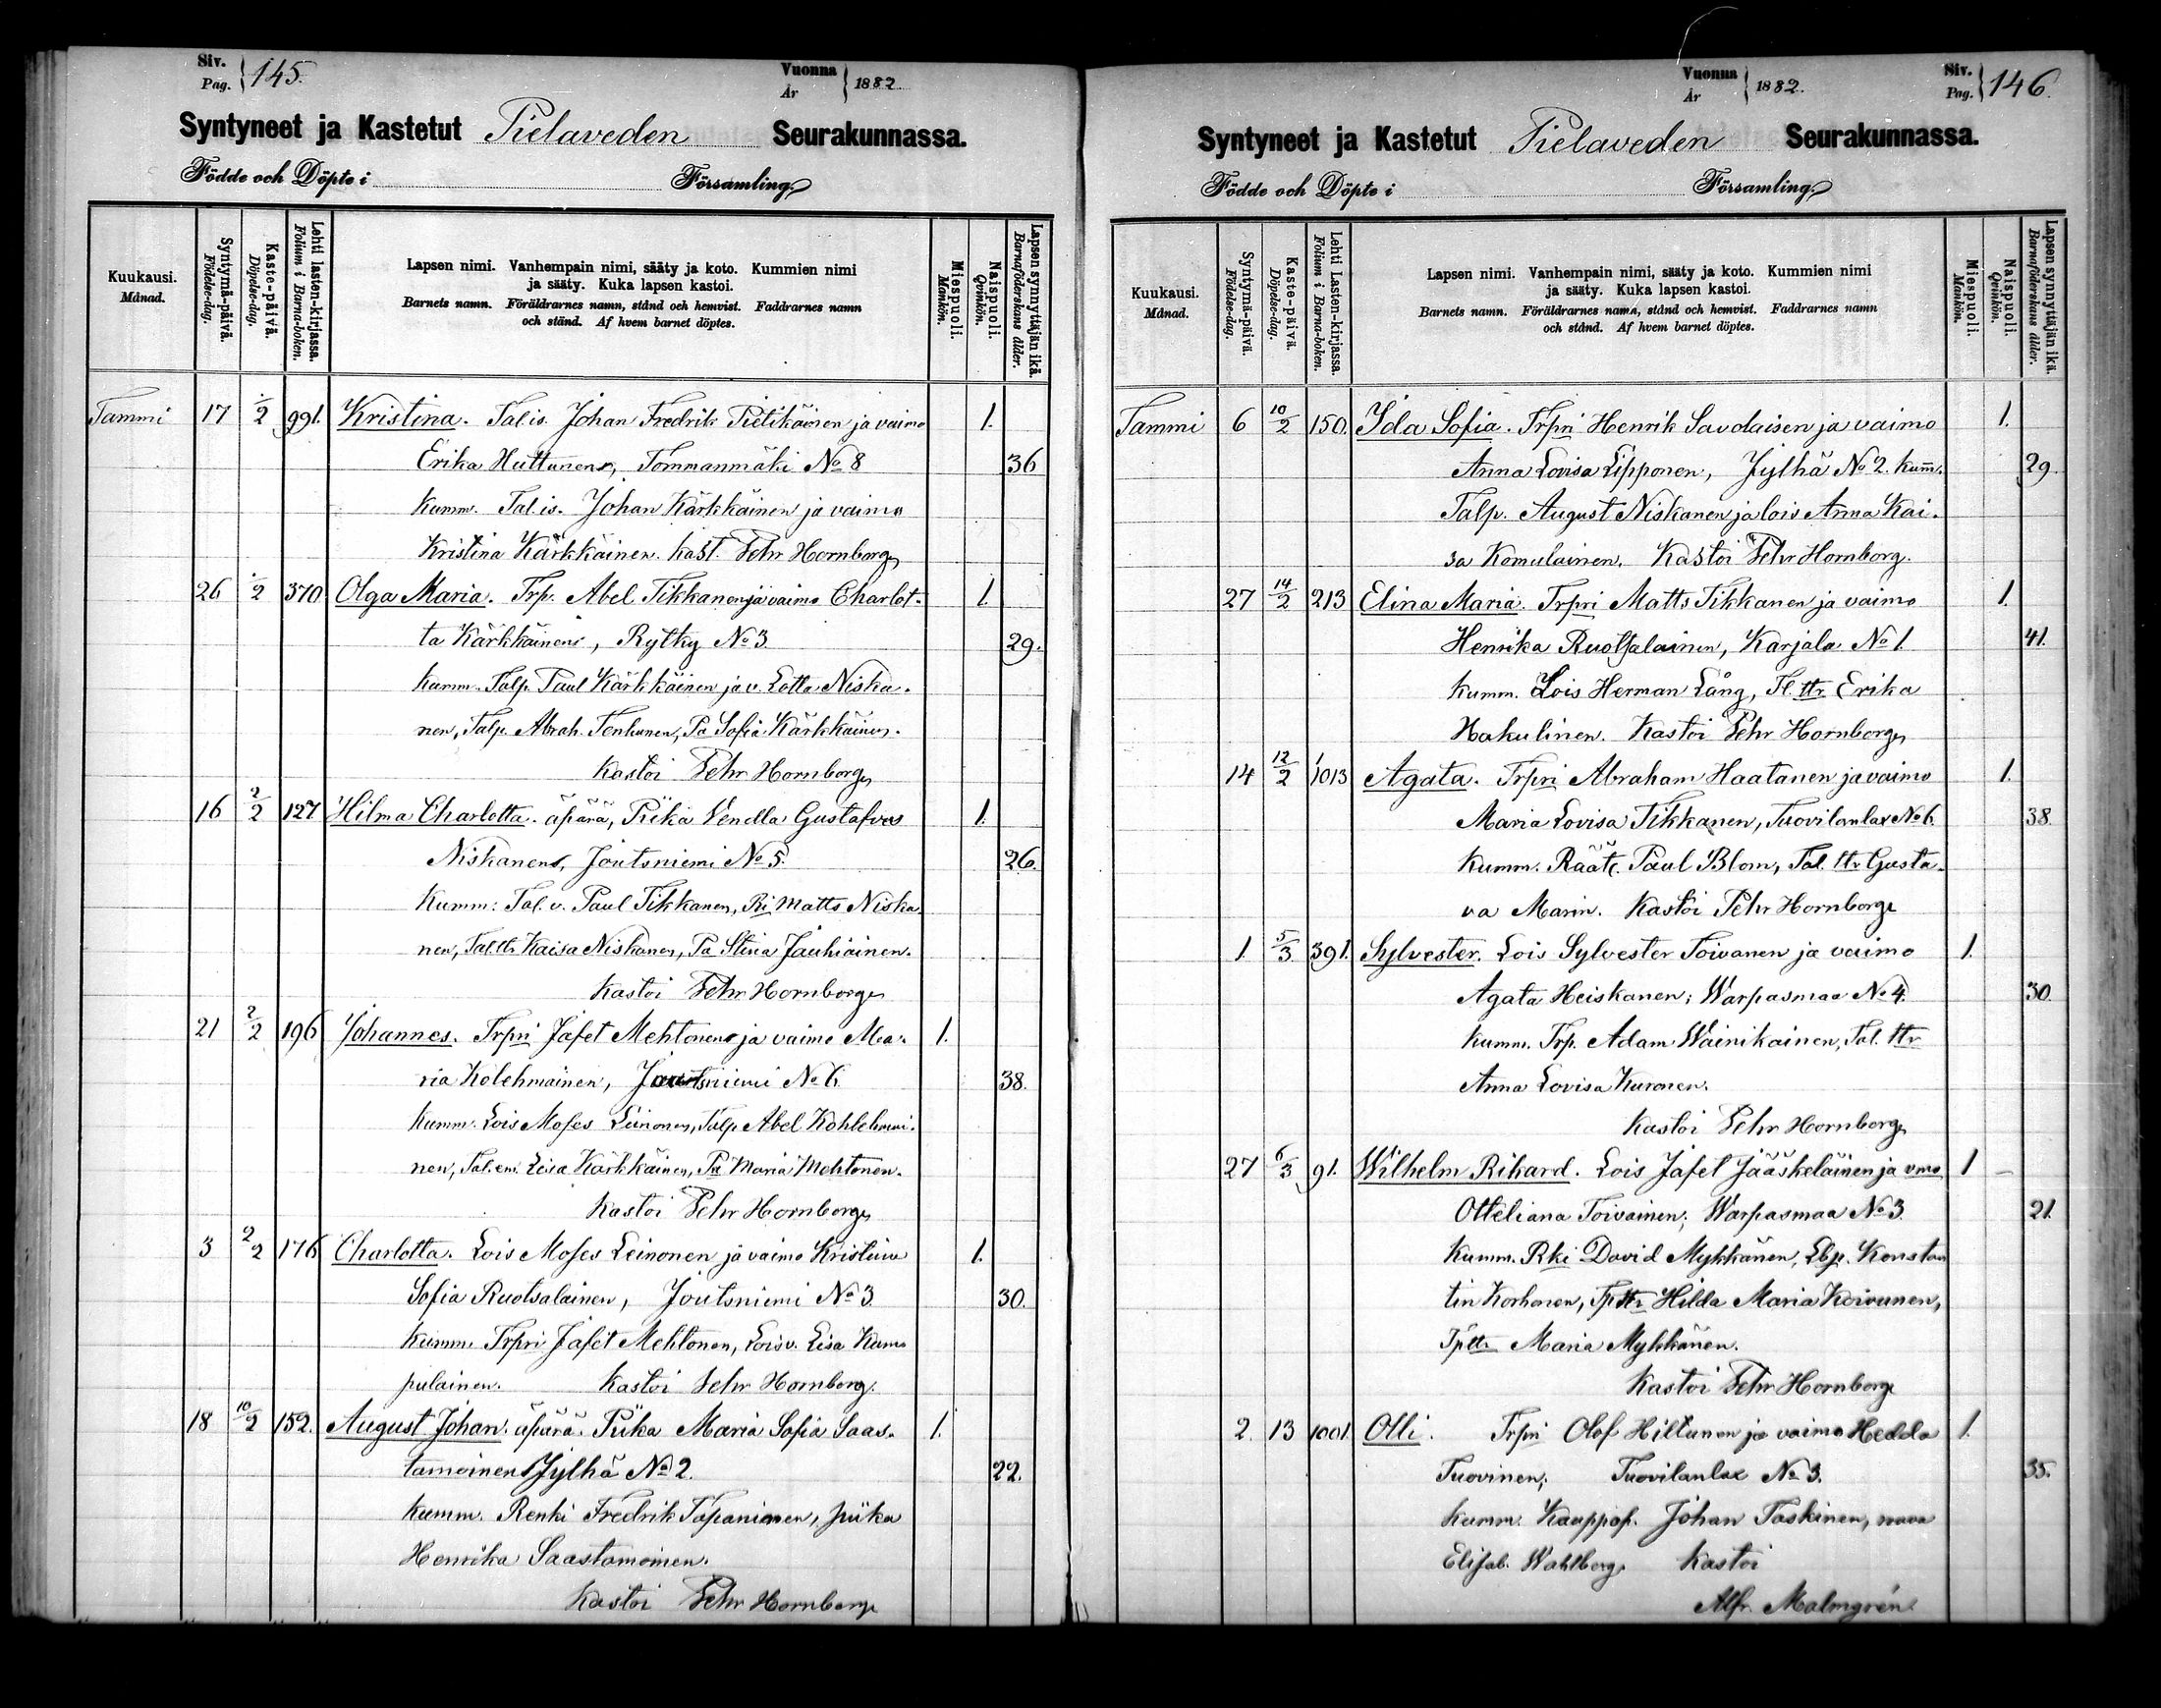 Siv. Pag. 145. Vuonna År 1882.
Syntyneet ja Kastetut Pielaveden Seurakunnassa.
Födde och Döpte i Församling.
Kuukausi. Månad.
Syntymä-päivä. Födelse-dag.
Kaste-päivä. Döpelse-dag.
Lehti lasten-kirjassa. Folium i Barna-boken.
Lapsen nimi. Vanhempain nimi, sääty ja koto. Kummien nimi
ja sääty. Kuka lapsen kastoi.
Barnets namn. Föräldrarnes namn, stånd och hemvist. Faddrarnes namn
och stånd. Af hvem barnet döptes.
Miespuoli. Mankön.
Naispuoli. Qvinkön.
Lapsen synnyttäjän ikä. Barnaföderskans ålder.
Tammi 17 /2 991. Kristina. Tal.is. Johan Fredrik Pietikäinen ja vaimo 1.
Erika Huttunen, Tommanmäki No 8 36
Kumm. Tal.is. Johan Kärkkäinen ja vaimo
Kristina Kärkkäinen. Kast. Pehr Hornborg
26 /2 370 Olga Maria. Trp. Abel Tikkanen ja vaimo Charlot- 1.
ta Kärkkäinen, Rytky No 3 29.
Kumm. Talp. Paul Kärkkäinen ja v. Lotta Niska-
nen, Talp. Abrah. Tenhunen, Pa Sofia Kärkkäinen.
Kastoi Pehr Hornborg
16 2/2 127 Hilma Charlotta. äpärä, Piika Vendla Gustafva 1.
Niskanen, Joutsniemi No 5. 26.
Kumm: Tal. v. Paul Tikkanen, Ri Matts Niska-
nen, Tal.ttr Kaisa Niskanen, Pa Stina Jauhiainen.
Kastoi Pehr Hornborg
21 2/2 196 Johannes. Trpri Jafet Mehtonen ja vaimo Ma- 1.
ria Kolehmainen, Joutsniemi No 6. 38.
Kumm. Lois Moses Leinonen, Talp. Abel Kohlehmai-
nen, Tal.em. Leisa Kärkkäinen, Pa Maria Mehtonen.
Kastoi Pehr Hornborg
3 2/2 176 Charlotta. Lois Moses Leinonen ja vaimo Kristina 1.
Sofia Ruotsalainen, Joutsniemi No 3 30.
Kumm. Trpri Jafet Mehtonen, Lois v. Lisa Kum-
pulainen. Kastoi Pehr Hornborg.
18 10/2 152. August Johan. äpärä. Piika Maria Sofia Saas- 1.
tamoinen Jylhä No 2. 22.
Kumm. Renki Fredrik Tapaninen, piika
Henrika Saastamoinen.
Kastoi Pehr Hornborg
Vuonna År 1882. Siv. Pag. 146.
Syntyneet ja Kastetut Pielaveden Seurakunnassa.
Födde och Döpte i Församling.
Kuukausi. Månad.
Syntymä-päivä. Födelse-dag.
Kaste-päivä. Döpelse-dag.
Lehti Lasten-kirjassa. Folium i Barna-boken.
Lapsen nimi. Vanhempain nimi, sääty ja koto. Kummien nimi
ja sääty. Kuka lapsen kastoi.
Barnets namn. Föräldrarnes namn, stånd och hemvist. Faddrarnes namn
och stånd. Af hvem barnet döptes.
Miespuoli. Mankön.
Naispuoli. Qvinkön.
Lapsen synnyttäjän ikä. Barnaföderskans ålder.
Tammi 6 10/2 150. Ida Sofia. Trpri Henrik Savolaisen ja vaimo 1.
Anna Lovisa Lipponen, Jylhä No 2. Kumm. 29.
Talp. August Niskanen ja lois Anna Kai-
sa Komulainen. Kastoi Pehr Hornborg.
27 14/2 213 Elina Maria. Trpri Matts Tikkanen ja vaimo 1.
Henrika Ruotsalainen, Karjala No 1. 41.
Kumm. Lois Herman Lång, Tl. ttr Erika
Hakulinen. Kastoi Pehr Hornborg
14 12/2 1013 Agata. Trpri Abraham Haatanen ja vaimo 1.
Maria Lovisa Tikkanen, Tuovilanlax No 6. 38.
Kumm. Räät. Paul Blom, Tal. ttr Gusta-
va Marin. Kastoi Pehr Hornborg
1. 5/3 391. Sylvester. Lois Sylvester Toivanen ja vaimo 1.
Agata Heiskanen; Warpasmaa No 4. 30.
Kumm. Trp. Adam Wainikainen, Tal. ttr
Anna Lovisa Kuronen.
Kastoi Pehr Hornborg
27 6/3 91. Wilhelm Rikard. Lois Jafet Jääskeläinen ja vmo 1 –
Otteliana Toivainen; Warpasmaa No 3 21.
Kumm. Rki David Mykkänen, Lbp. Konstan
tin Korhonen, Tpttr Hilda Maria Koivunen,
Tpttr Maria Mykkänen.
Kastoi Pehr Hornborg
2. 13 1001. Olli. Trpri Olof Hiltunen ja vaimo Hedda 1.
Tuovinen; Tuovilanlax No 3. 35.
Kumm. Kauppap. Johan Taskinen, rouva
Elisab. Wahlberg. Kastoi
Alfr. Malmgrén